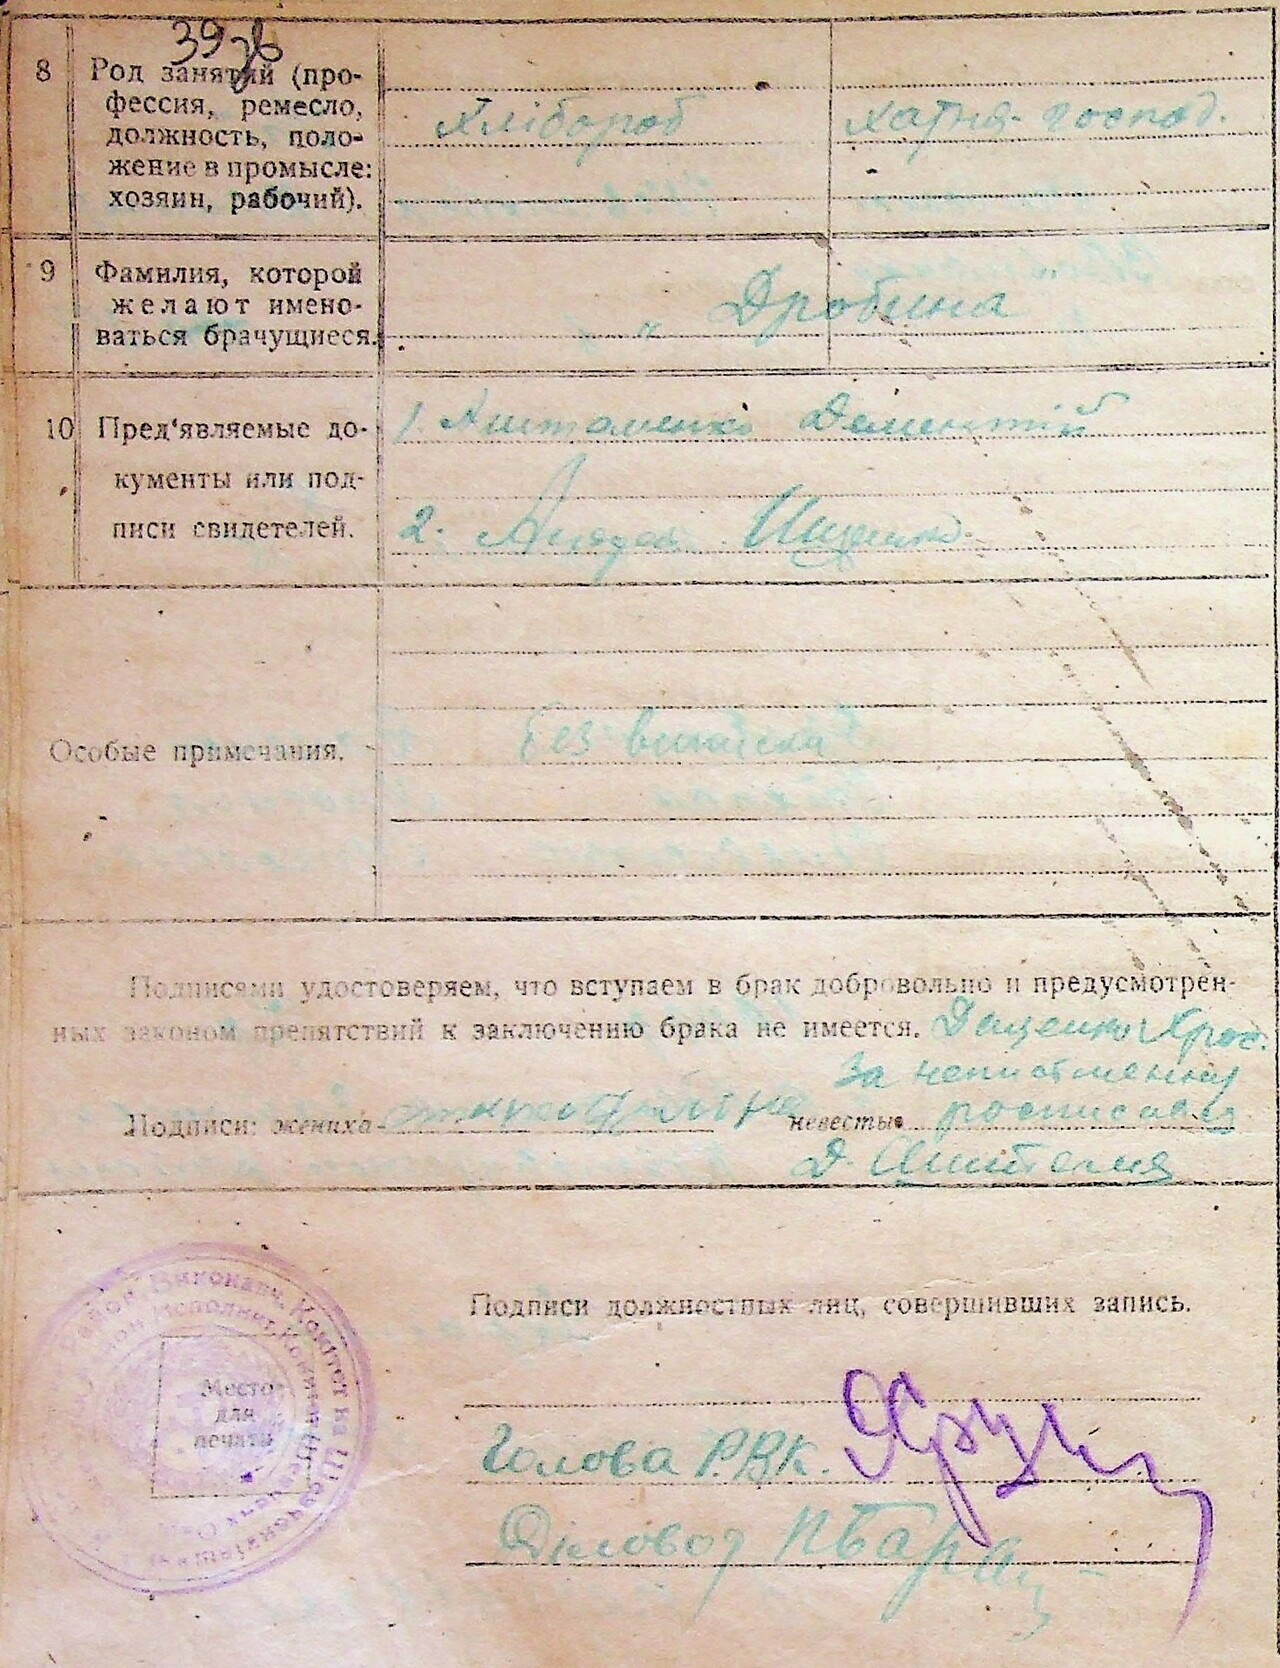 39 зв
8 Род занятий (про-
фессия, ремесло,
должность, поло-
жение в промысле:
хозяин, рабочий).
Хлібороб
хатня господ.
9 Фамилия, которой
желают имено-
ваться брачущиеся.
Дробина
10 Пред'являемые до-
кументы или под-
писи свидетелей.
1. Дементій
2. Андрей Ищенко
Особые примечания.
Без
Подписями удостоверяем, что вступаем в брак добровольно и предусмотрен-
ных законом препятствий к заключению брака не имеется. Даценко Хрос.
За неписменну
Подписи: жениха невесты росписався
Д.
Район. Виконавч. Комітет
Исполнит. Комитет
Место
для
печати
Подписи должностных лиц, совершивших запись.
Голова РВК.
Діловод